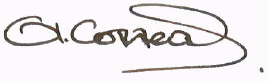 A. Correa